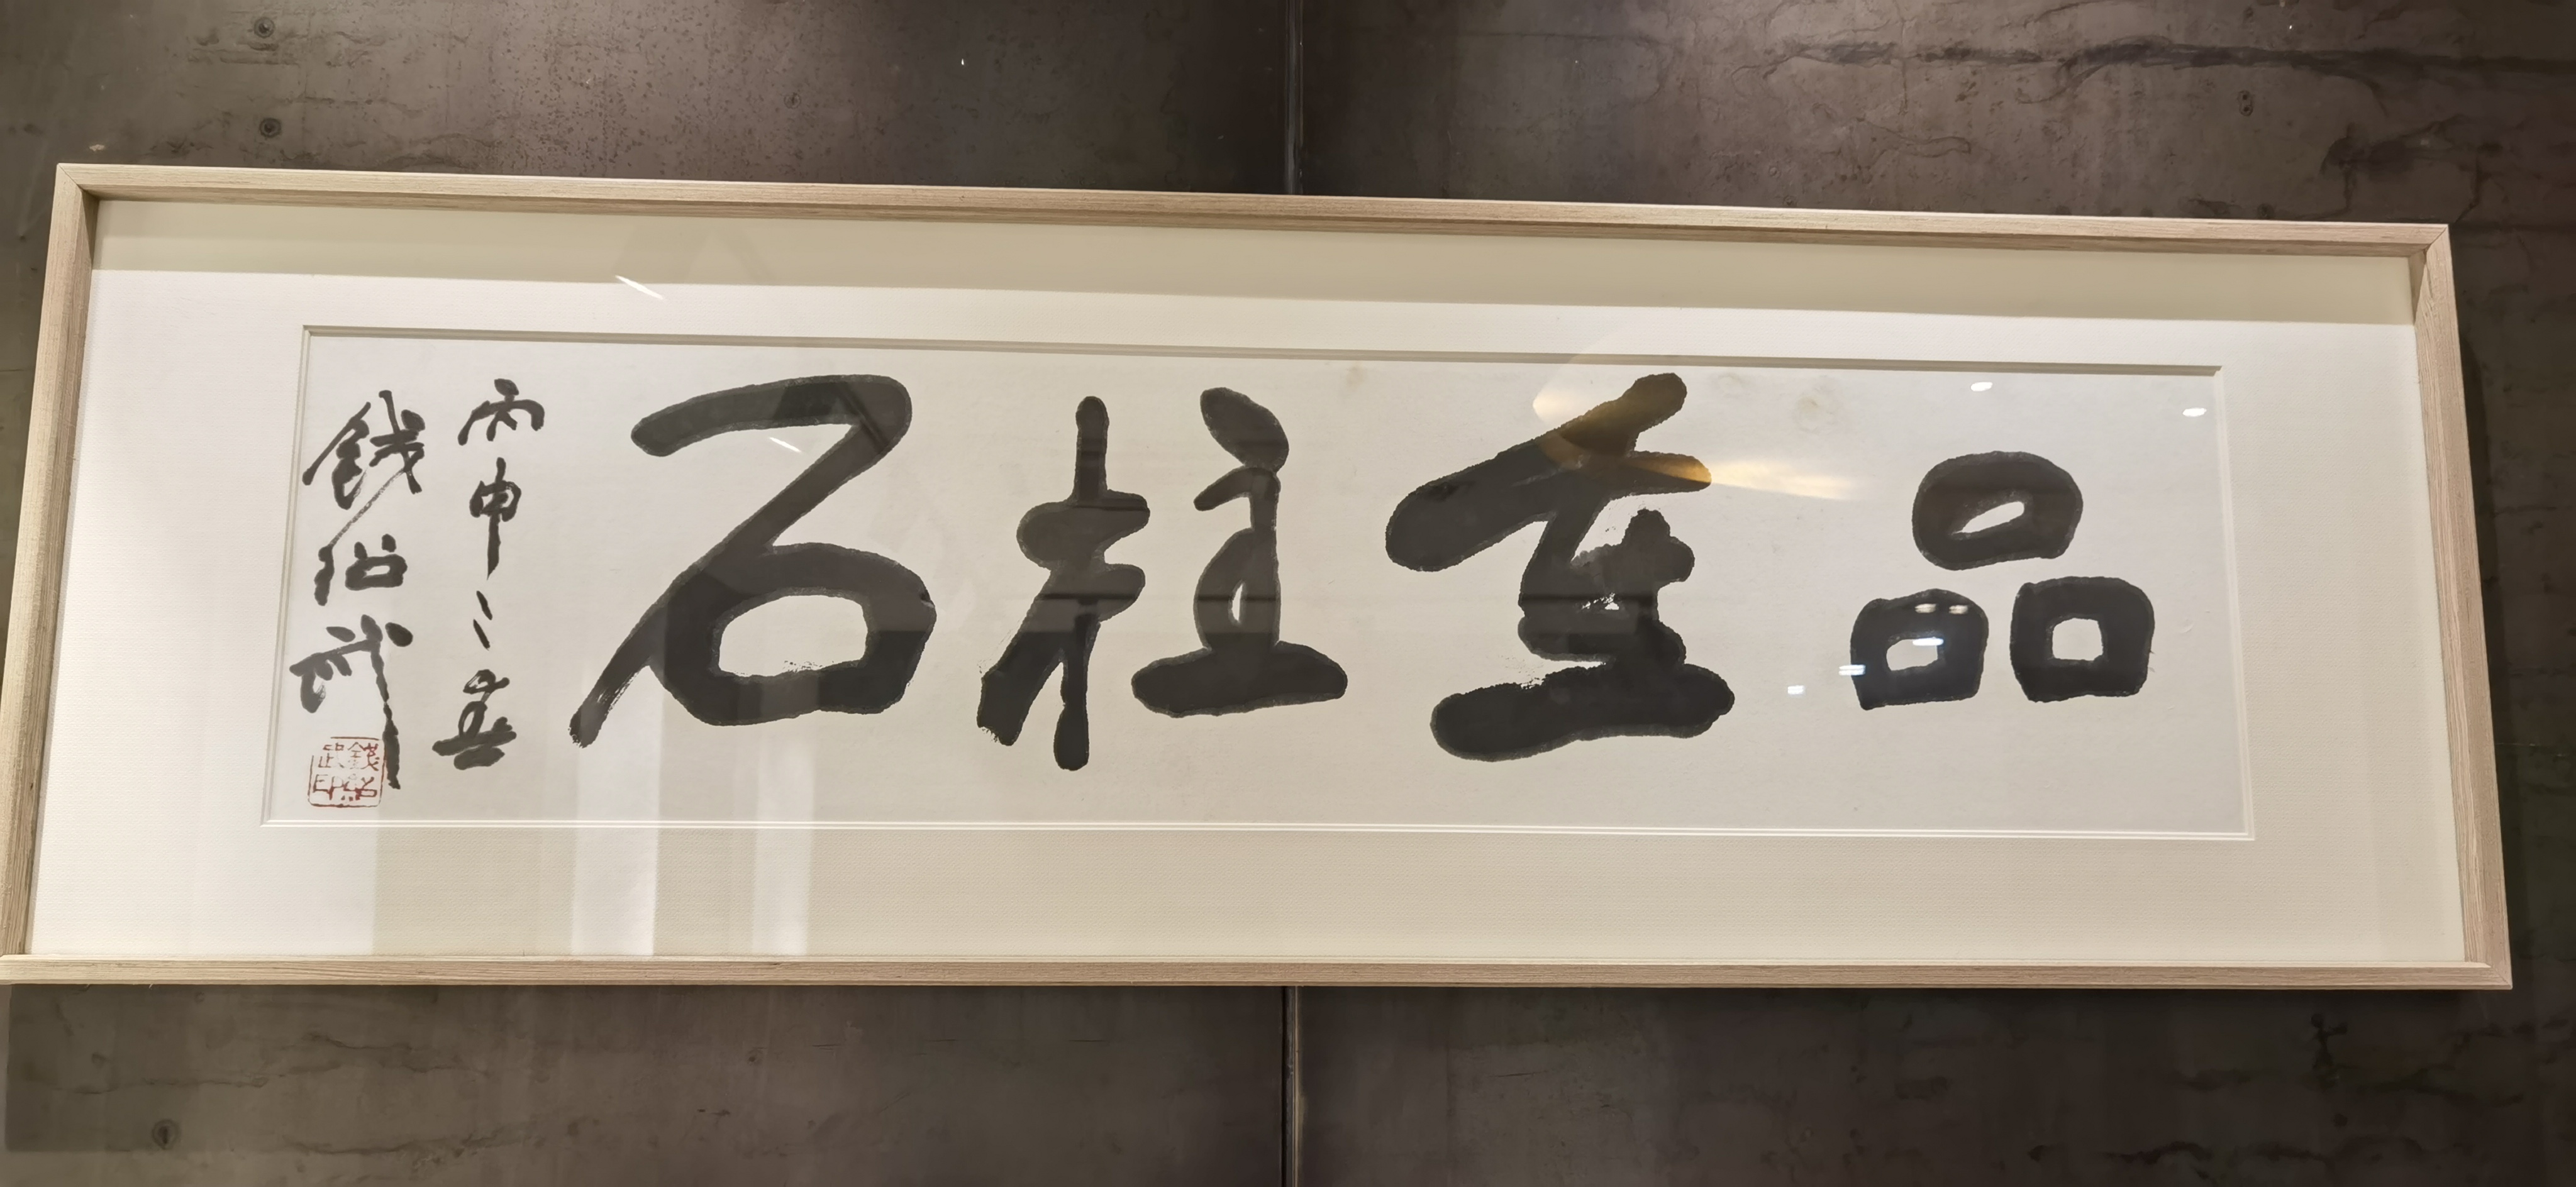 品重柱石
丙申之春
錢紹武
錢紹武印